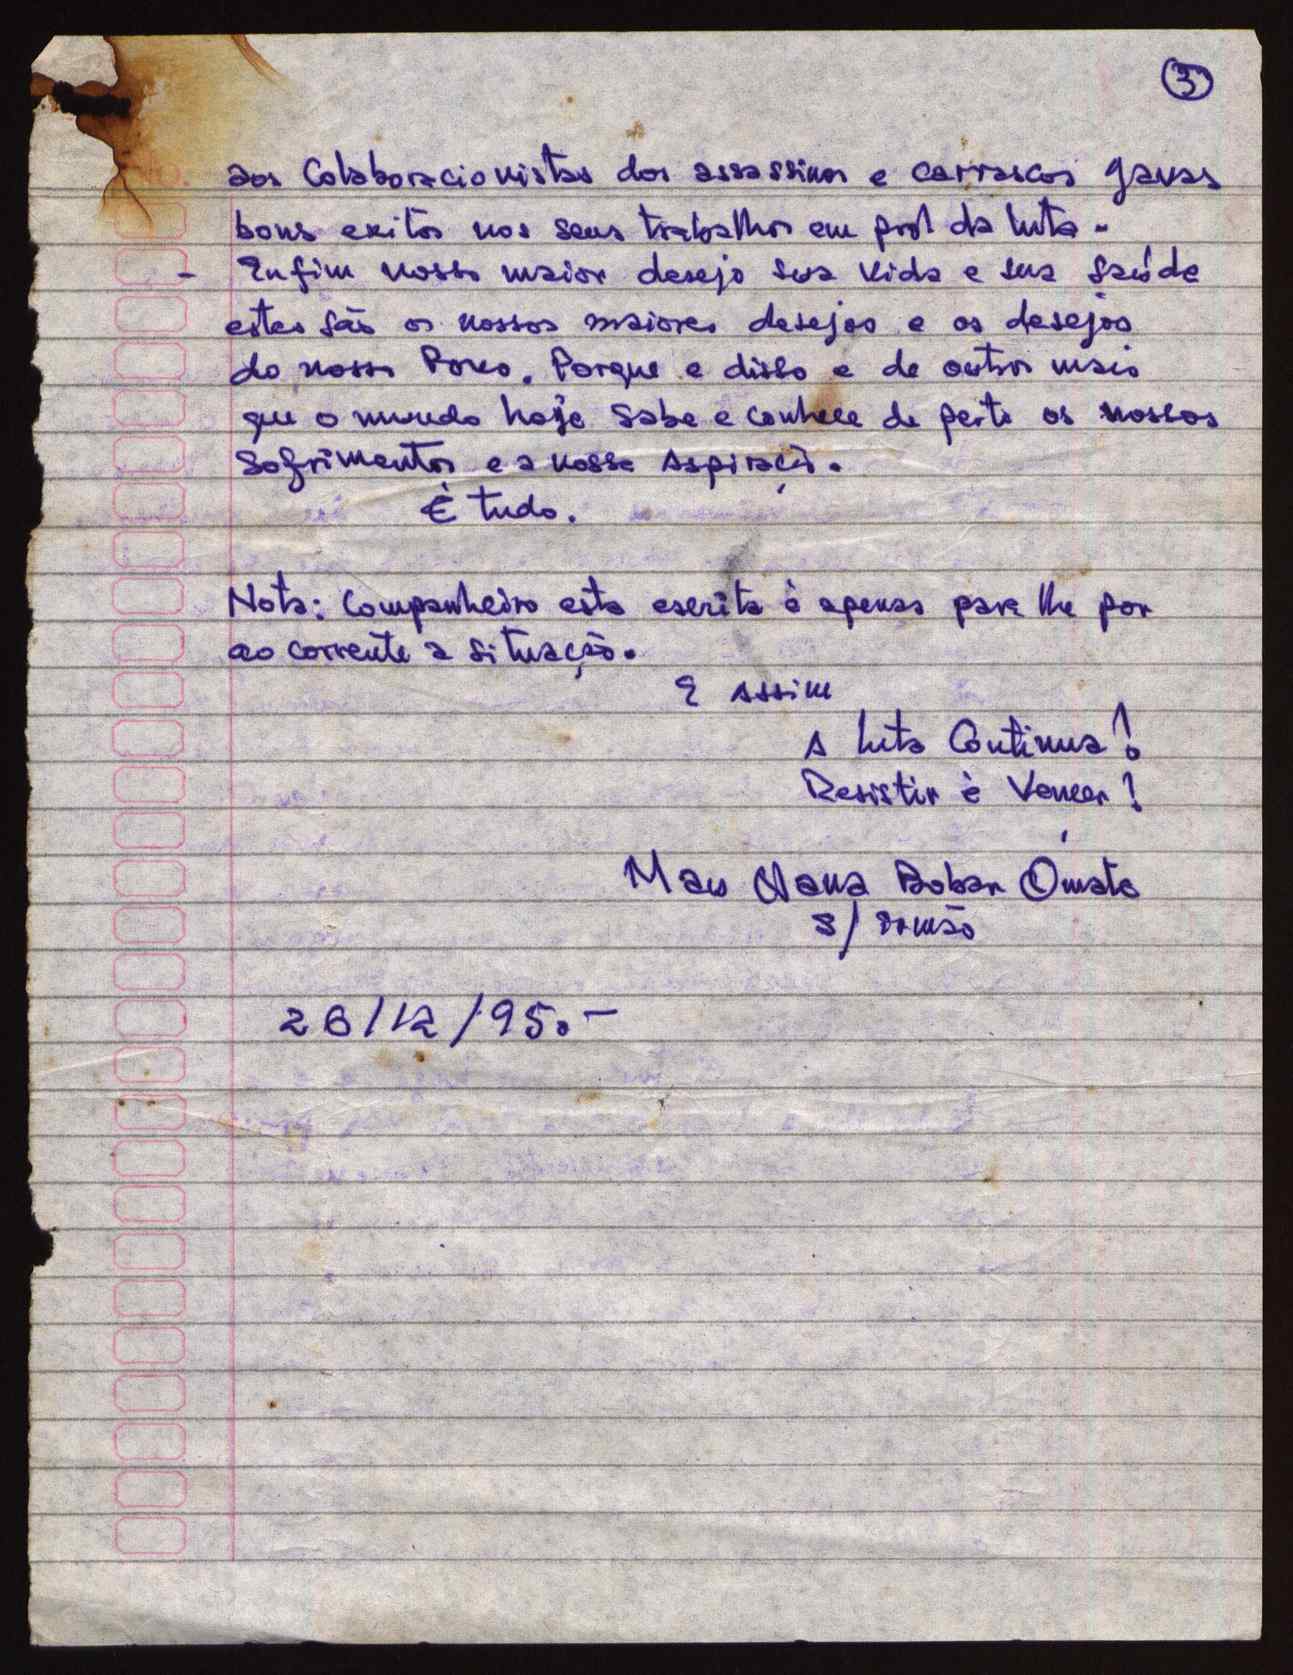 3
aos Colaboracionistas dos assassinos e carrascos Javas
bons exitos nos seus trabalhos em prol da luta.
- Enfim nosso maior desejo sua vida e sua Saúde
estes são os nossos maiores desejos e os desejos
do nosso Povo. Porque e disso e de outros mais
que o mundo hoje Sabe e conhece de perto os nossos
Sofrimentos e a nossa Aspiração.
È tudo.
Nota: Companheiro esta escrita è apenas para lhe por
ao corrente a Situação.
E Assim
A luta Continua!
Resistir è Vencer!
Mau Nana Bobar
S/ Irmão
26/12/95.-